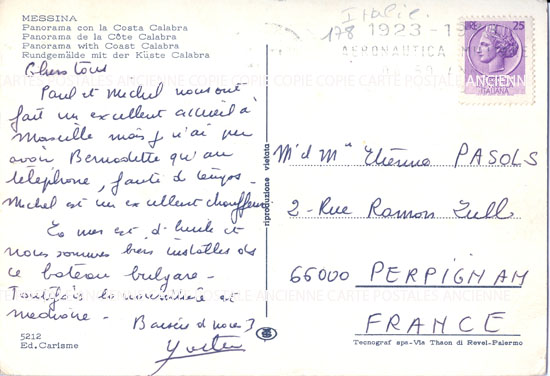 MESSINA
Panorama con la Costa Calabra
Panorama de la Côte Calabra
Panorama with Coast Calabra
Rundgemälde mit der Küste Calabra
Italie.
178
1923-1
AERONAUTICA MILITARE
25
ITALIANA
CARTE POSTALES ANCIENNE COPIE CARTE POSTALES ANCIENNE
Chers tous
Paul et Michel nous ont
fait un excellent accueil à
Marseille mais je n'ai pu
avoir Bernadette qu'au
téléphone, faute de temps.
Michel est un excellent chauffeur
La mer est d'huile et
nous sommes bien installés ds
ce bateau bulgare -
Toutefois la nourriture est
médiocre -
Baisers d nous 3
Yvette
riproduzione vietata
M'd Mme Etienne PASOLS
2 - Rue Ramon Lull
66000 PERPIGNAN
FRANCE
5212
Ed. Carisme
Tecnograf spa-Via Thaon di Revel-Palermo